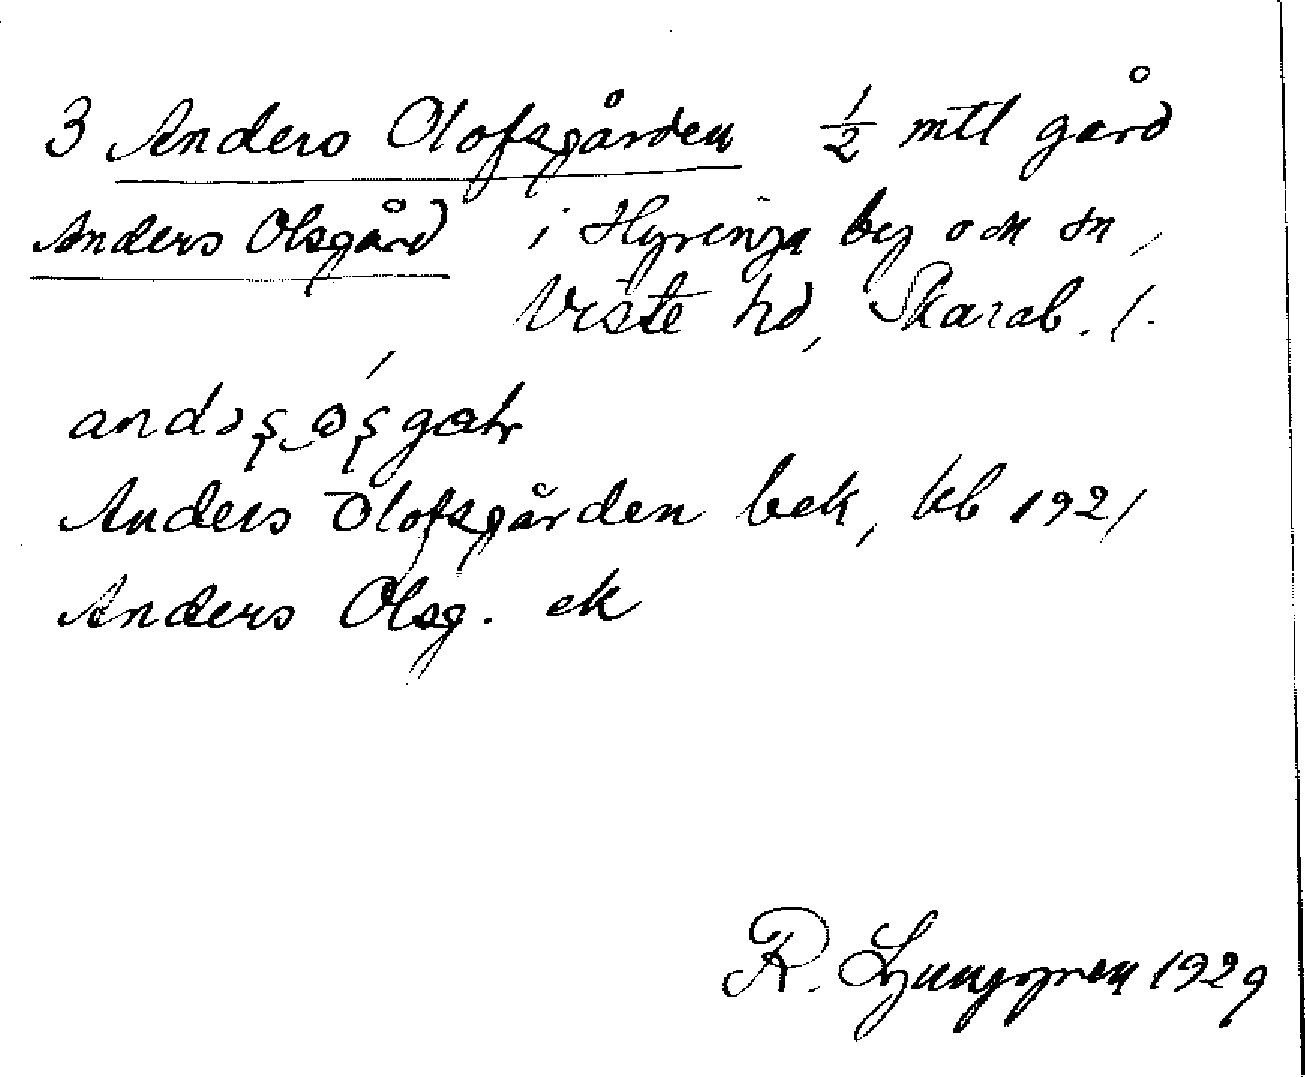 3 Anders Olofsgården ½ mtl gård
Anders Olsgård i Hyringa by och sn,
Viste hd, Skarab. l.
Anders Olofsgården bek, kb 1921
Anders Olsg. ek
R. Ljunggren 1929